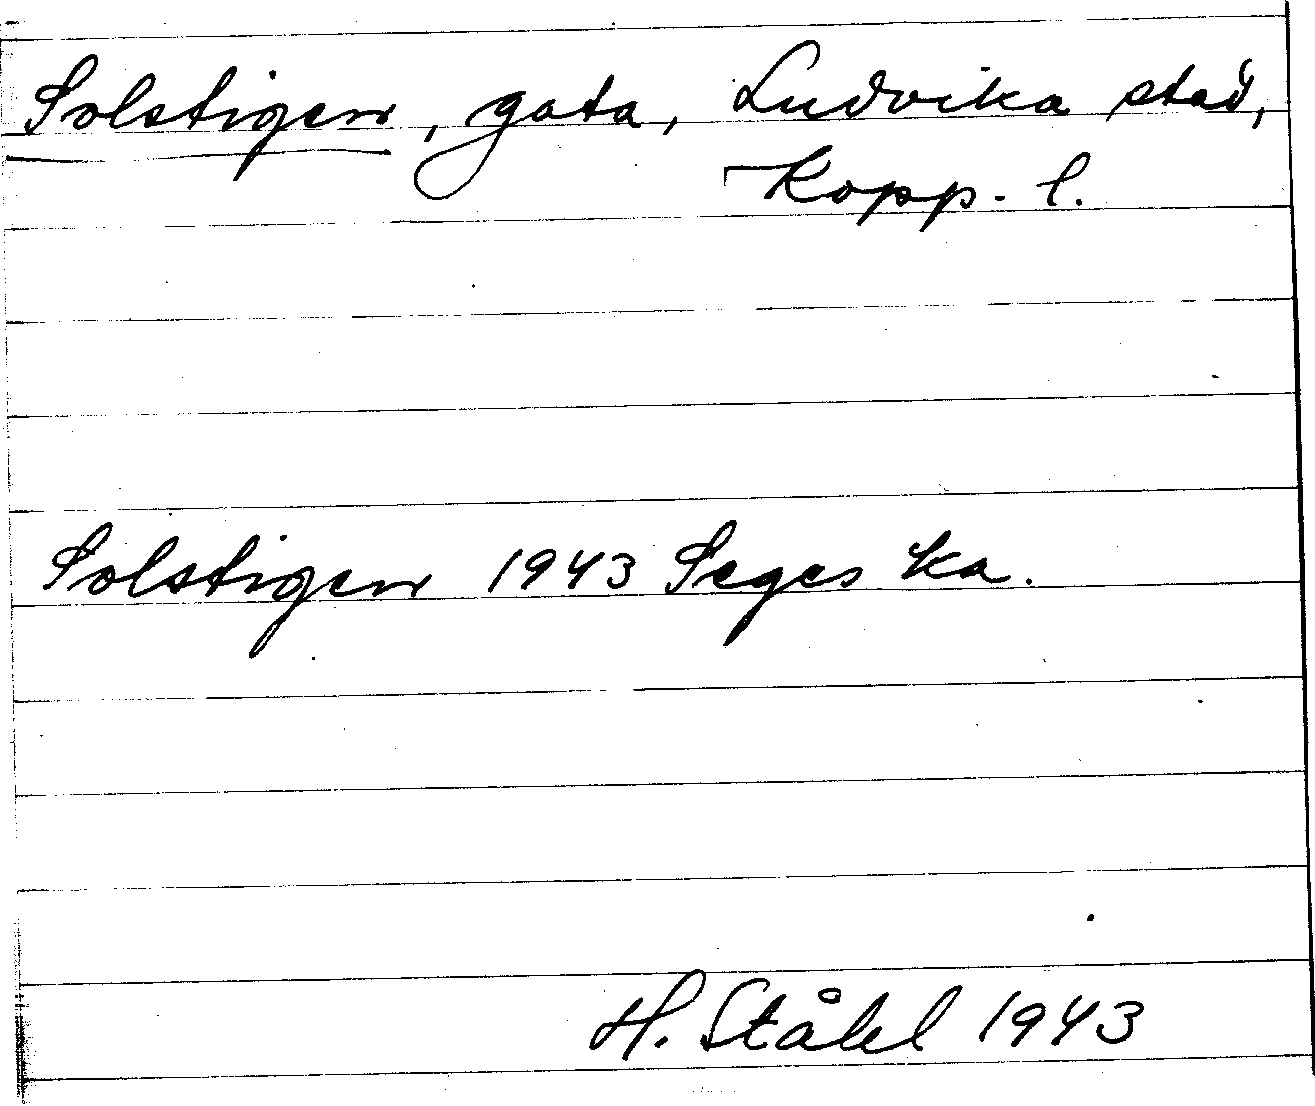 Solstigen, gata, Ludvika stad,
Kopp. l.
Solstigen 1943 Seges ka.
H. Ståhl 1943